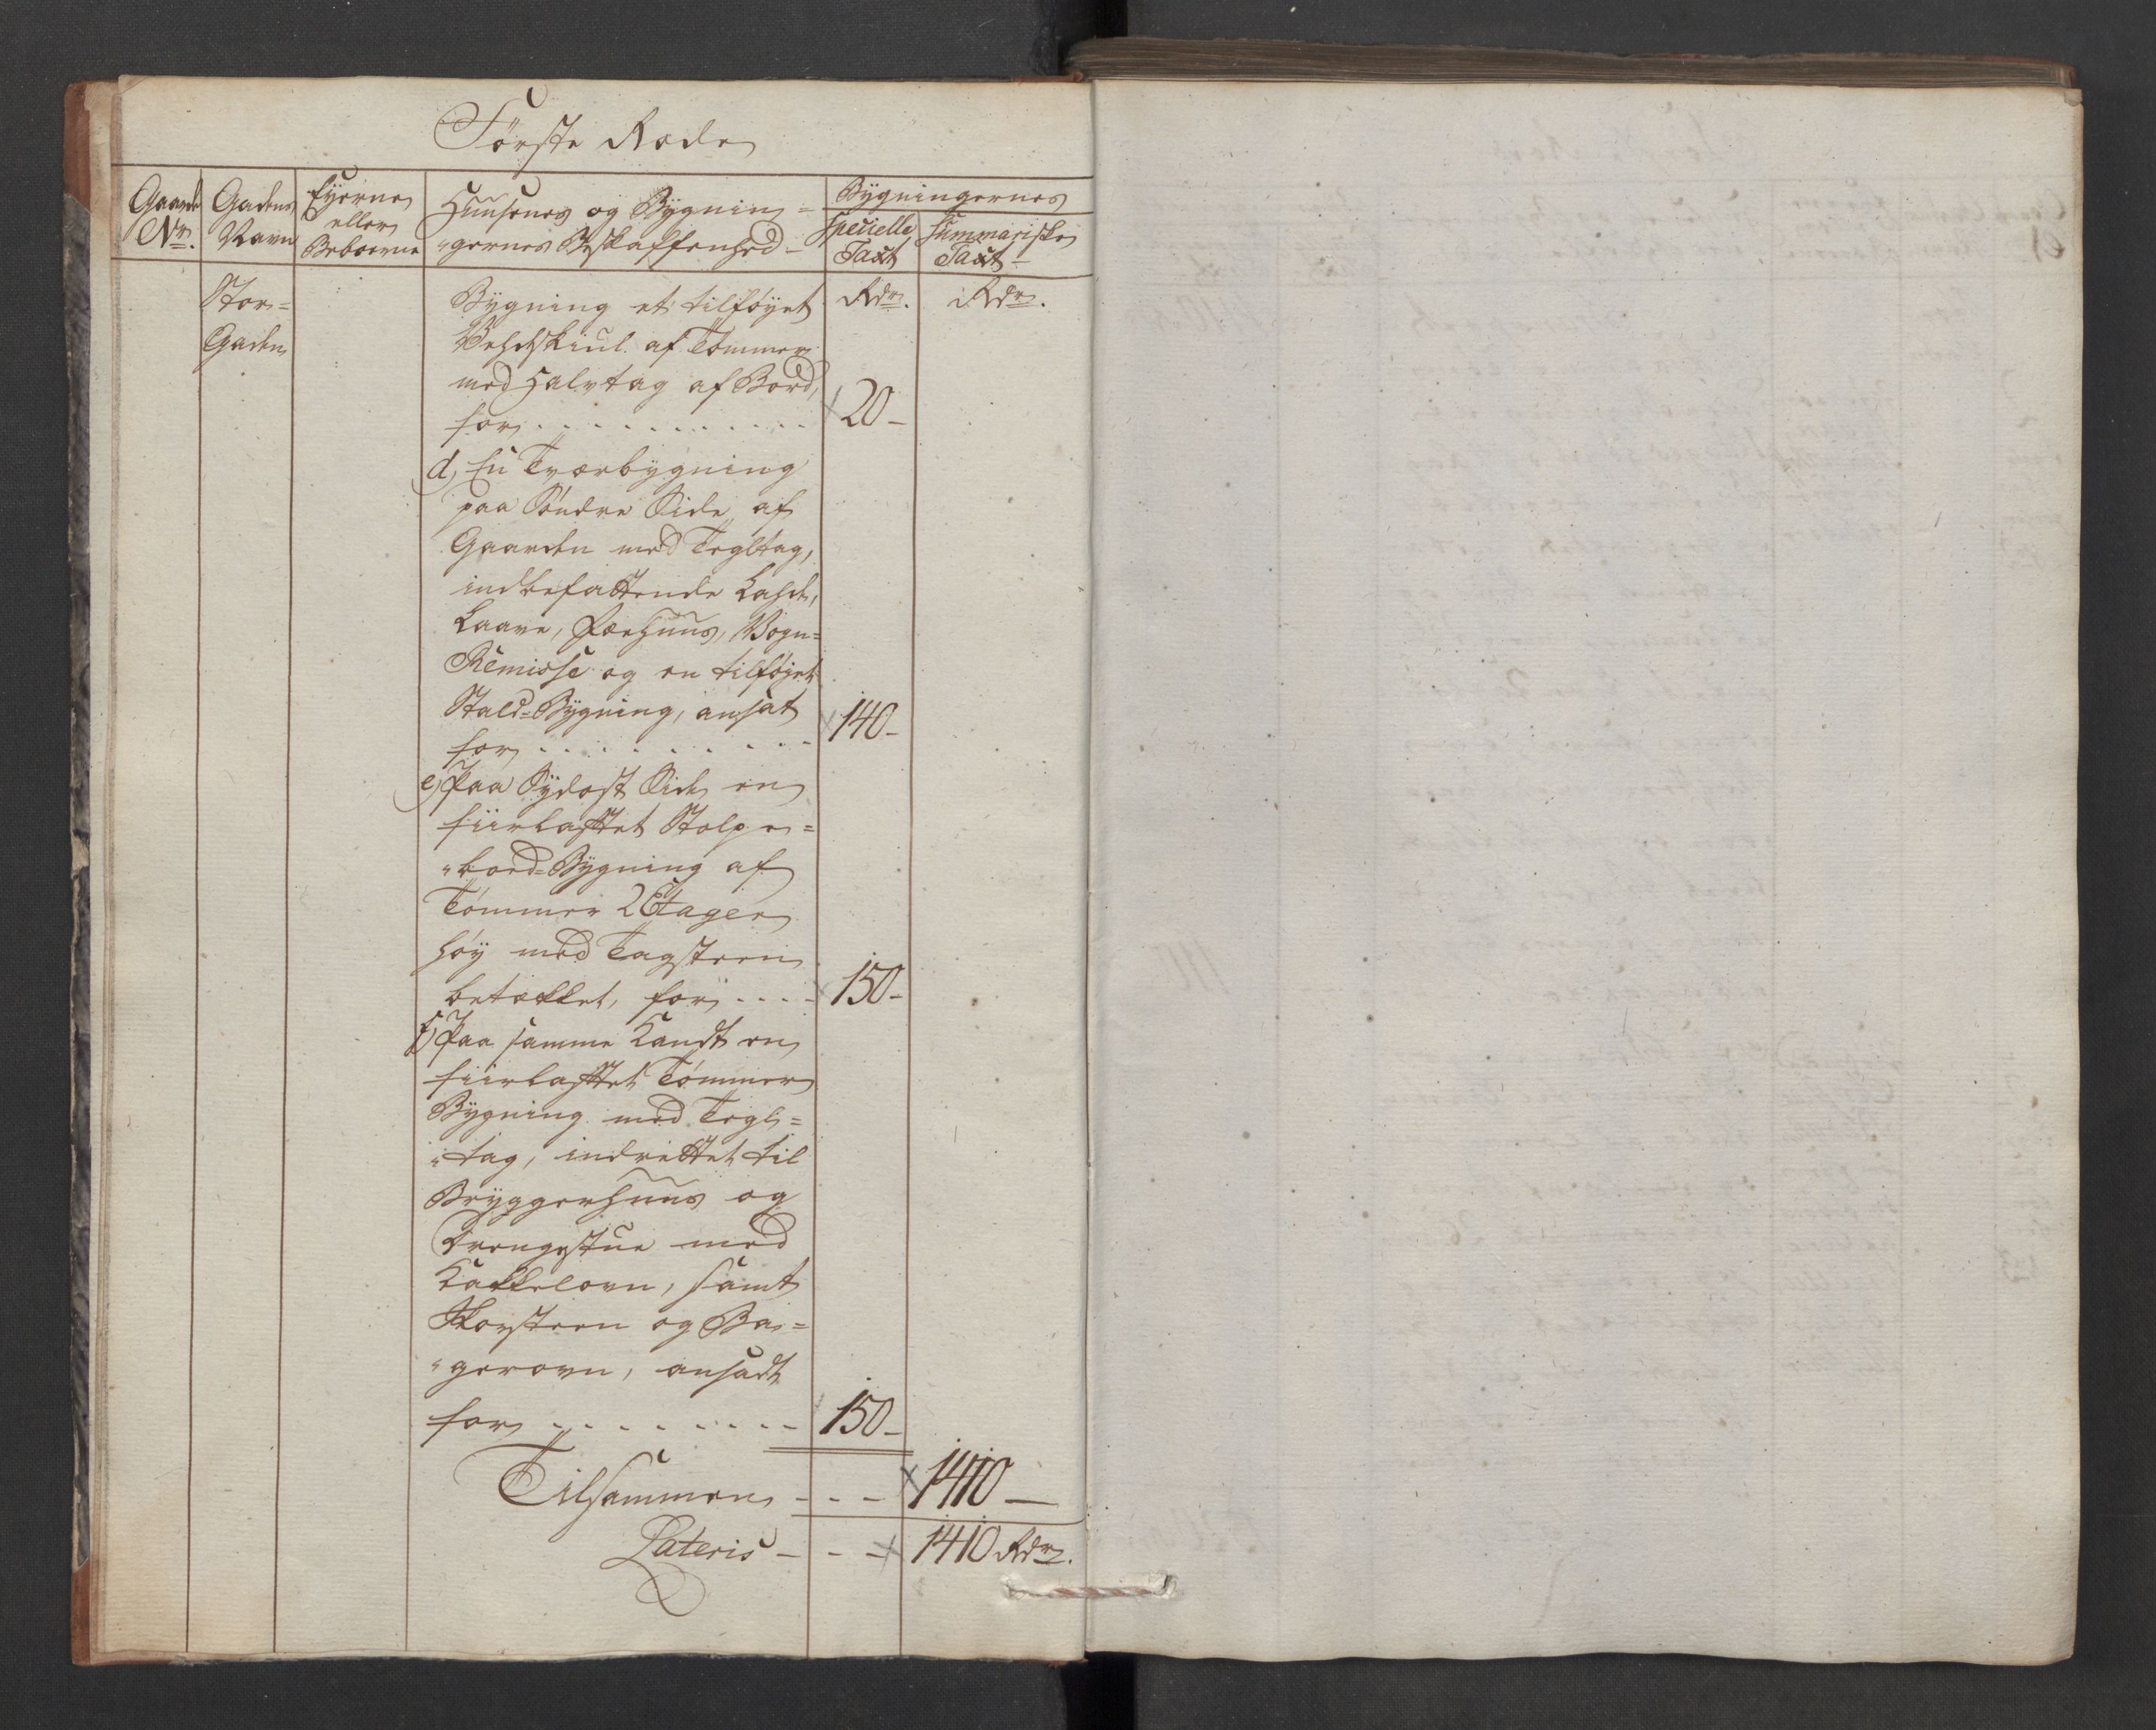 Første Rode
Gaards Nr.
Gadens Navn
Eyerne eller Beboerne
Huusenes og Bygnin=
"gernes Beskaffenhed
Bygningernes
Specielle Taxt
Summariske Taxt
Stor=
Gaden
Rdr. Rdr.
Bygning et tilføyet
Vedskiul af Tømmer
med Halvtag af Bord,
for . . . . . . . . . . . 20 –
d, En Tværbygning
paa Søndre Side af
Gaarden med Tegltag,
indbefattende Lade,
Laave, Fæehuus, Vogn=
Remisse og en tilføjet
Stald=Bygning, ansat
for . . . . . . . . . . 140 –
e) Paa Sydost Side en
fiirlaftet Stolpe=
"bord=Bygning af
Tømmer 2 Etager
høy med Tagsteen
betækket, for . . . . 150 –
f) Paa samme Kandt en
fiirlaftet Tømmer
Bygning med Tegl=
"tag, indrettet til
Bryggerhuus og
Drengestue med
Kakkelovn, samt
Skorsteen og Ba=
"gerovn, ansadt
for . . . . . . . . . 150 –
Tilsammen - - - 1410 –
Lateris - - - 1410 Rdr.